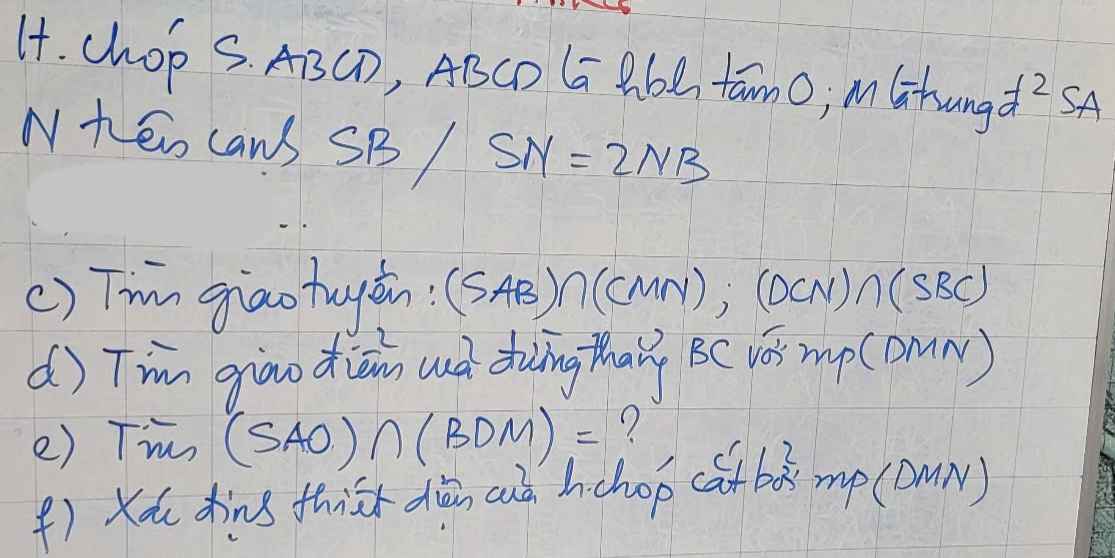 H. chóp S.ABCD, ABCD là hbh tâm O; M là trung đ² SA
N trên cạnh SB / SN = 2NB
c) Tìm giao tuyến: (SAB)∩(CMN); (DCN)∩(SBC)
d) Tìm giao điểm của đường thẳng BC với mp(DMN)
e) Tìm (SAO)∩(BDM) = ?
f) Xác định thiết diện của h.chóp cắt bởi mp(DMN)